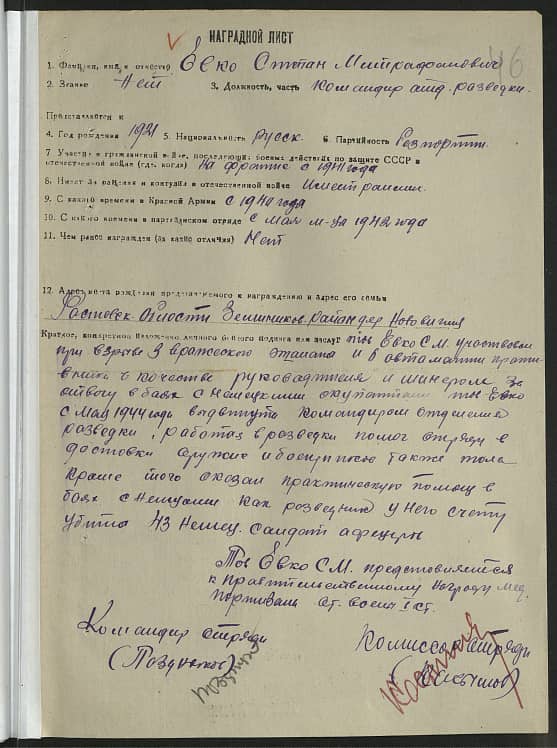 46
НАГРАДНОЙ ЛИСТ
1. Фамилия, имя и отчество Евко Степан Митрафанович
2. Звание Нет 3. Должность, часть Командир отд. разведки.
Представляется к
4. Год рождения 1921 5. Национальность Русск. 6. Партийность Безпортт.
7. Участие в гражданской войне, последующих боевых действиях по защите СССР и
отечественной войне (где, когда) На фронте с 1941 года
8. Имеет ли ранения и контузии в отечественной войне Имеет ранения.
9. С какого времени в Красной Армии с 1940 года
10. С какого времени в партизанском отряде с мая м-ца 1942 года
11. Чем ранее награжден (за какие отличия) Нет
12. Адрес места рождения представляемого к награждению и адрес его семьи
Ростовск. область район дер
Краткое, конкретное изложение личного боевого подвига или заслуг тов Евко С.М. участвовал
при взрыве 3 вражеского эшалона и 6 автамашин проти-
вника в качестве руководителя и минером. За
отвагу в боях с немецкими окупантами тов Евко
с Мая 1944 года выдвинут командиром отделения
разведки, работая в разведки помог отряду в
доставки оружие и боеприпасов также тола
кроме того оказал практическую помощь в
боях с Немцами как разведчик у него счету
убито 43 немец. солдат афецеры
Тов Евко С.М. предстовляется
к правительственному Награду Мед.
Портизана От. воены I ст.
Командир отряда
Комиссар отряда